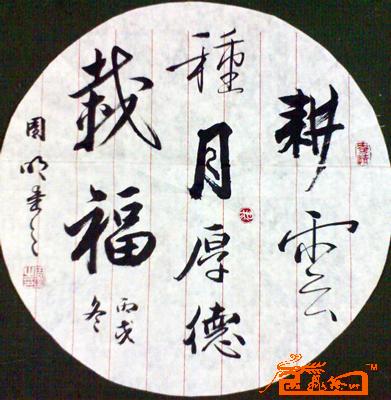 耕雲
種月厚德
載福
丙戌
冬
周明
TM